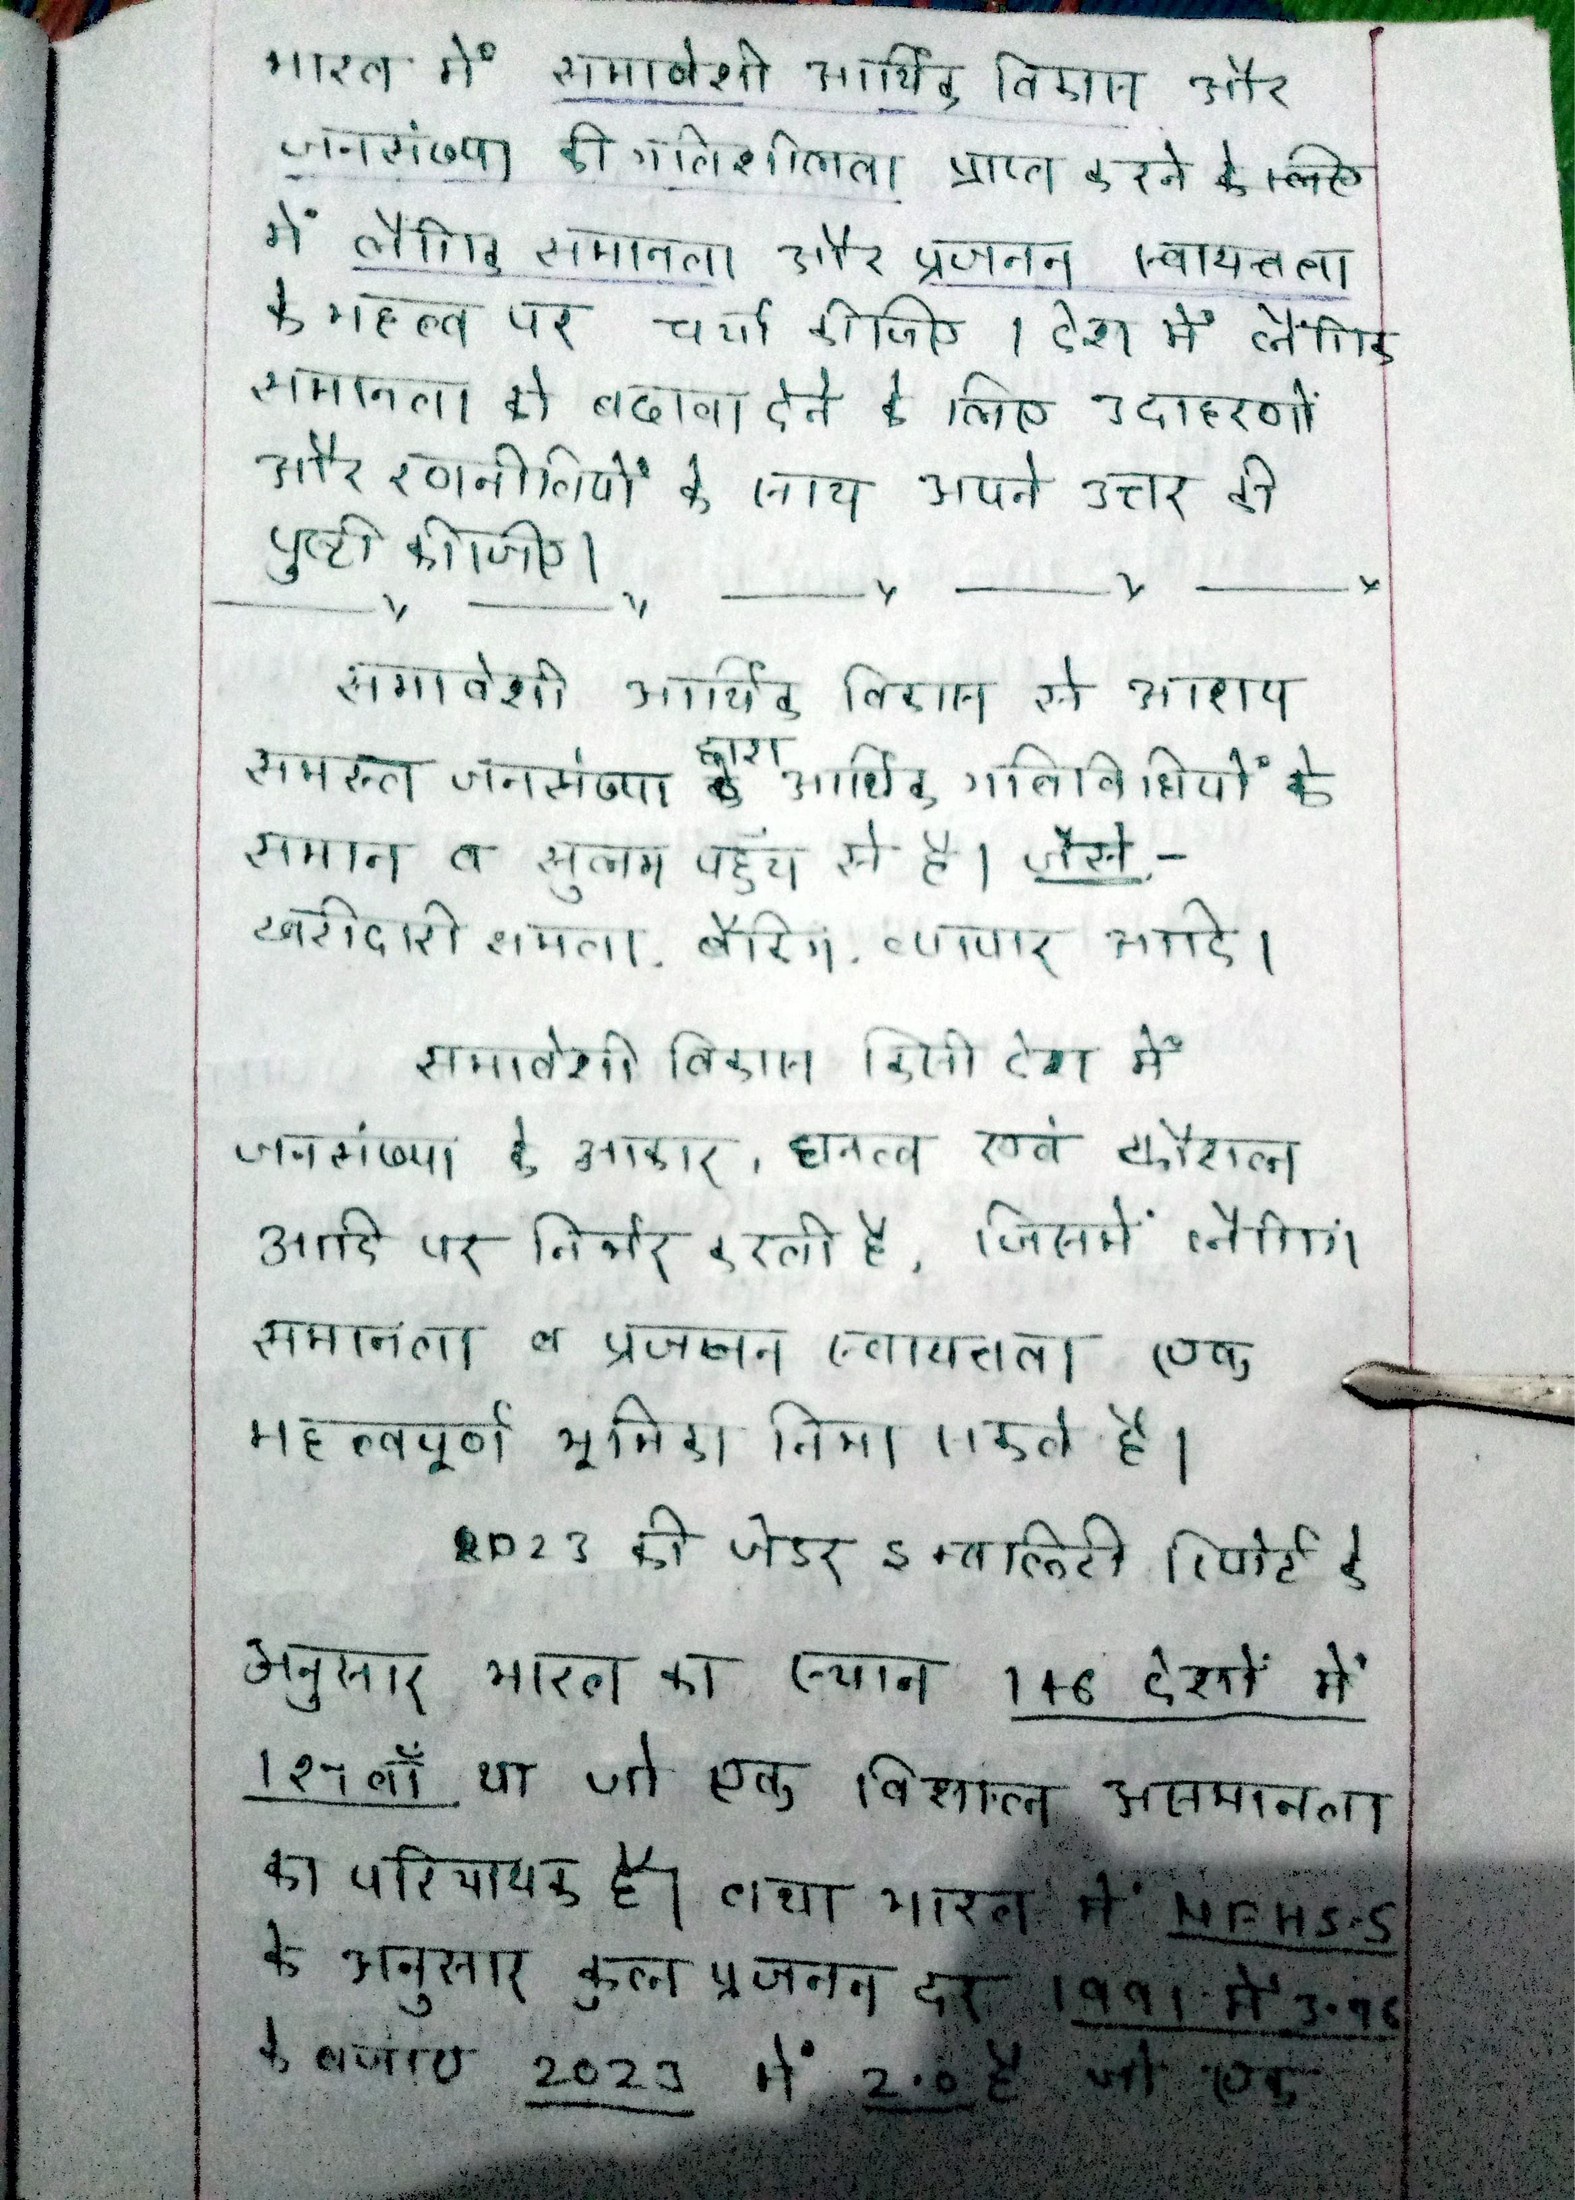 भारत में समावेशी आर्थिक विकास और
जनसंख्या की गतिशीलता प्राप्त करने के लिए
में लैंगिक समानता और प्रजनन स्वायत्तता
के महत्व पर चर्चा कीजिए । देश में लैंगिक
समानता को बढावा देने के लिए उदाहरणों
और रणनीतियों के साथ अपने उत्तर की
पुष्टी कीजिए।
समावेशी आर्थिक विकास से आशय
समस्त जनसंख्या द्वारा आर्थिक गतिविधियों के
समान व सुलभ पहुंच से है। जैसे -
खरीदारी क्षमता, बैंकिंग, व्यापार आदि।
समावेशी विकास किसी देश में
जनसंख्या के आकार, घनत्व एवं कौशल
आदि पर निर्भर करती है, जिसमें लैंगिग
समानता व प्रजनन स्वायत्तता एक
महत्वपूर्ण भूमिका निभा सकते है।
2023 की जेंडर इक्वालिटी रिपोर्ट के
अनुसार भारत का स्थान 146 देशों में
127 वाँ था जो एक विशाल असमानता
का परिचायक है। तथा भारत में NFHS-5
के अनुसार कुल प्रजनन दर 1991 में 3.96
के बजाए 2023 में 2.0 है जो एक